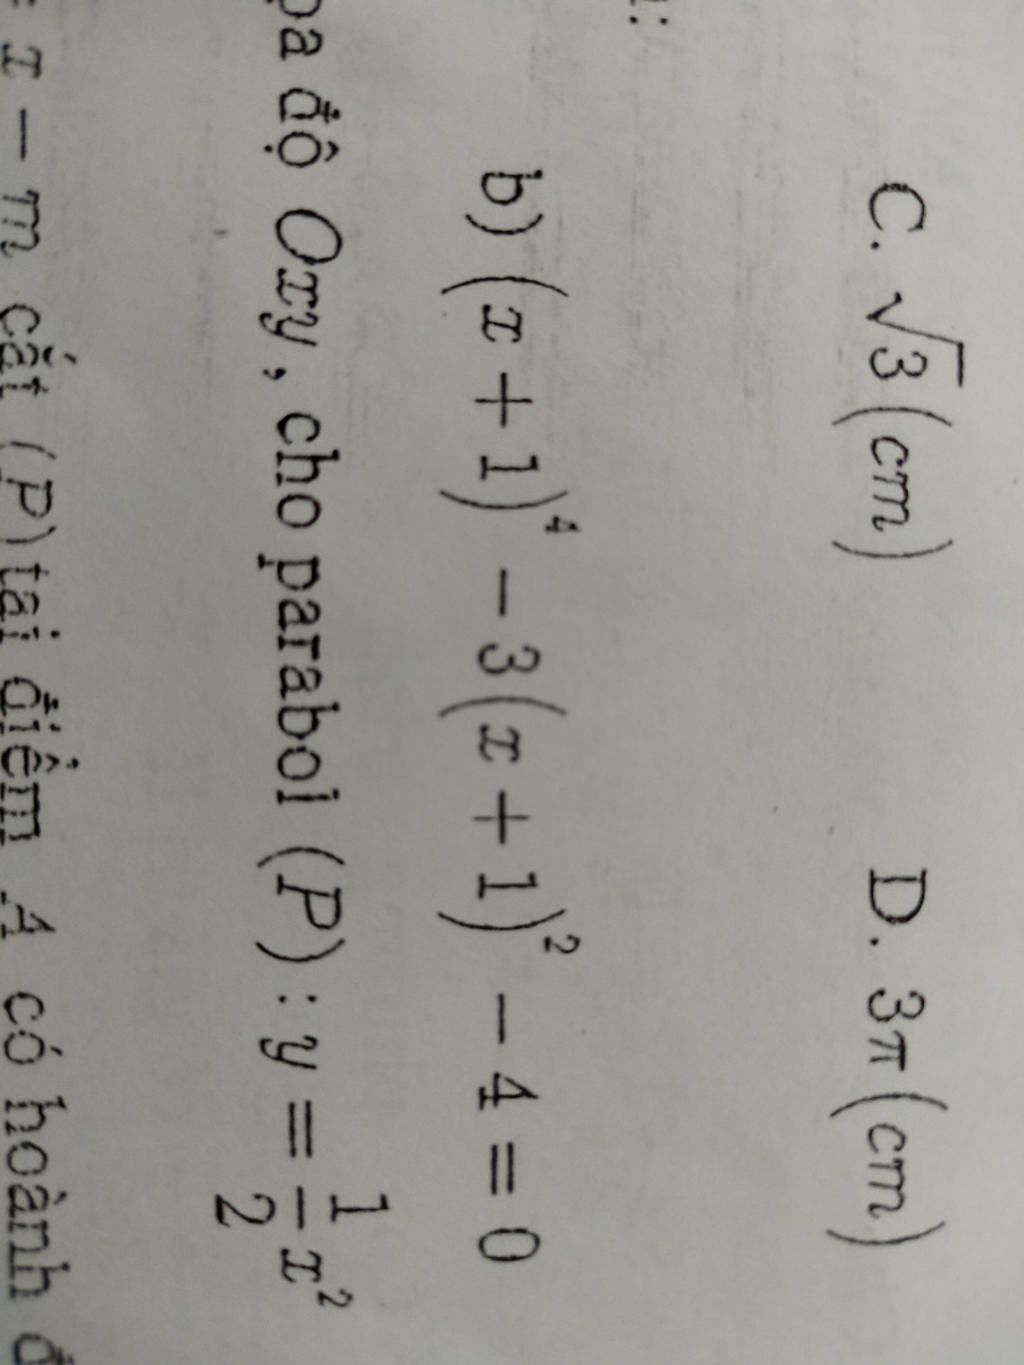 C. √3(cm) D. 3π(cm)
b) (x + 1)⁴ − 3(x + 1)² − 4 = 0
độ Oxy, cho parabol (P) : y = 1/2 x²
x − m cắt (P) tại điểm A có hoành